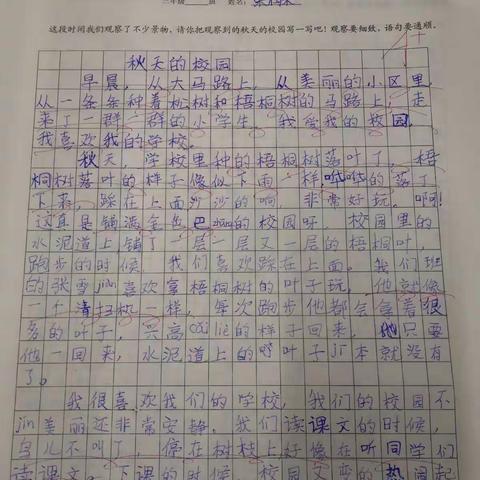 三年级 班 姓名:
这段时间我们观察了不少景物,请你把观察到的秋天的校园写一写吧!观察要细致,语句要通顺。
秋天的校园
早晨,从大马路上,从美丽的小区里,
从一条条种着松树和梧桐树的马路上,走
来了一群一群的小学生。我爱我的校园,
我喜欢我的学校。
秋天,学校里种的梧桐树落叶了,梧
桐树落叶的样子像似下雨一样,哗哗的落了
下来,踩在上面沙沙的响,非常好玩。啊!
这真是铺满金色巴zhang的校园呀 校园里的
水泥道上铺了一层一层又一层的梧桐叶,
跑步的时候 我们喜欢踩在上面。我们班
的张 jin喜欢拿梧桐树的叶子玩, 他就像
一个清扫机一样, 每次跑步他都会拿着很
多的叶子,兴高cǎi lie的样子回来,他只要
他一回来,水泥道上的 叶子jī本就没有
了。
我很喜欢我们的学校,我们的校园不
jǐn美丽还非常安静。我们读课文的时候,
鸟儿不叫了,停在树枝上好像在听同学们
读课文。下课的时候,校园又变的热闹起